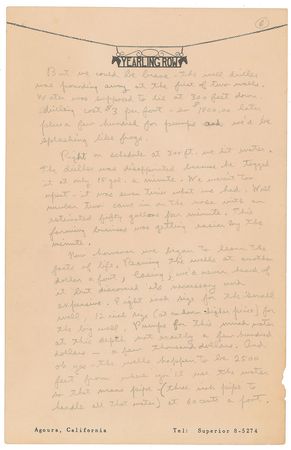 6
YEARLING ROW
But we could be brave. The well driller
was pounding away at the first of two wells.
Water was supposed to lie at 300 feet down.
drilling cost $3 per foot – so $1800.00 later
plus a few hundred for pumps and we'd be
splashing like frogs.
Right on schedule at 300 ft. we hit water.
The driller was disappointed because he tagged
it at only 15 gal. a minute. We weren't
upset – it was seven times what we had. Well
number two came in on the nose with an
estimated fifty gallons per minute. This
farming business was getting easier by the
minute.
Now however we began to learn the
facts of life. Casing the wells at another
dollar a foot, Casing, we'd never heard of
it but discovered its necessary and
expensive. Eight inch rigs for the small
well, 12 inch rigs (at an even higher price) for
the big well. Pumps for this much water
at this depth not exactly a few hundred
dollars – a few thousand dollars. And
oh yes – the wells happen to be 2500
feet from where you'll use the water
so that means pipe (three inch pipe to
handle all that water) at 80 cents a foot.
Agoura, California
Tel: Superior 8-5274